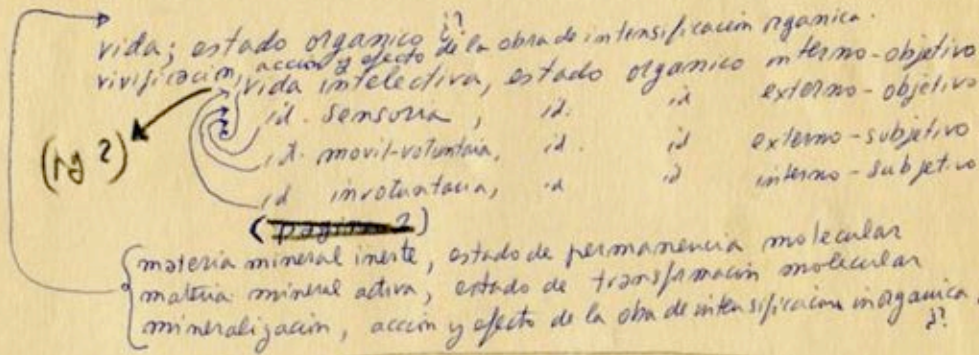 vida; estado organico ¿?
vivificación, acción y efecto de la obra de intensificación organica.
vida intelectiva, estado organico interno-objetivo
id. sensoria, id. id externo-objetivo
id. movil-voluntaria, id. id externo-subjetivo
id involuntaria, id id interno-subjetivo
(pg 2)
(pagina 2)
materia mineral inerte, estado de permanencia molecular
materia mineral activa, estado de transformación molecular
mineralización, acción y efecto de la obra de intensificación inorganica
¿?